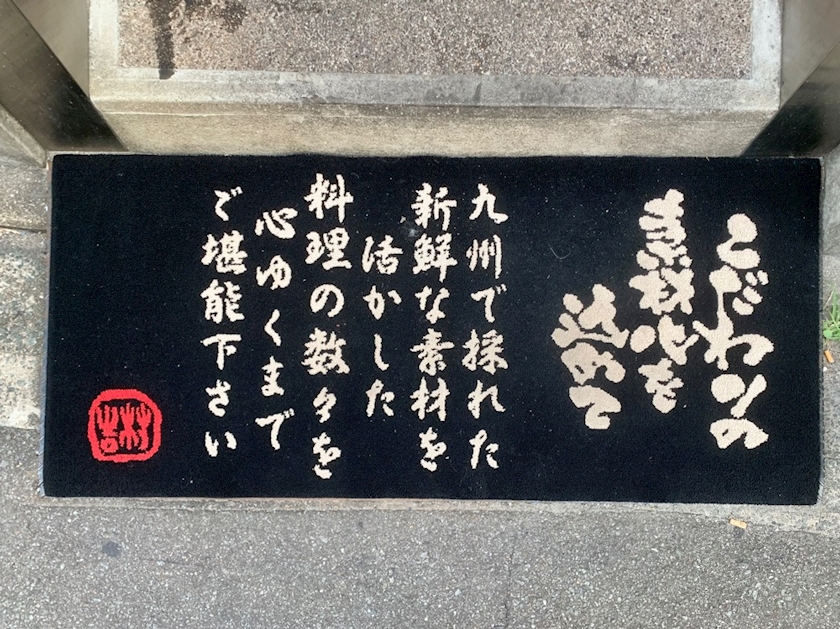 こだわりの
素材心を
込めて
九州で採れた
新鮮な素材を
活かした
料理の数々を
心ゆくまで
ご堪能下さい
吉村